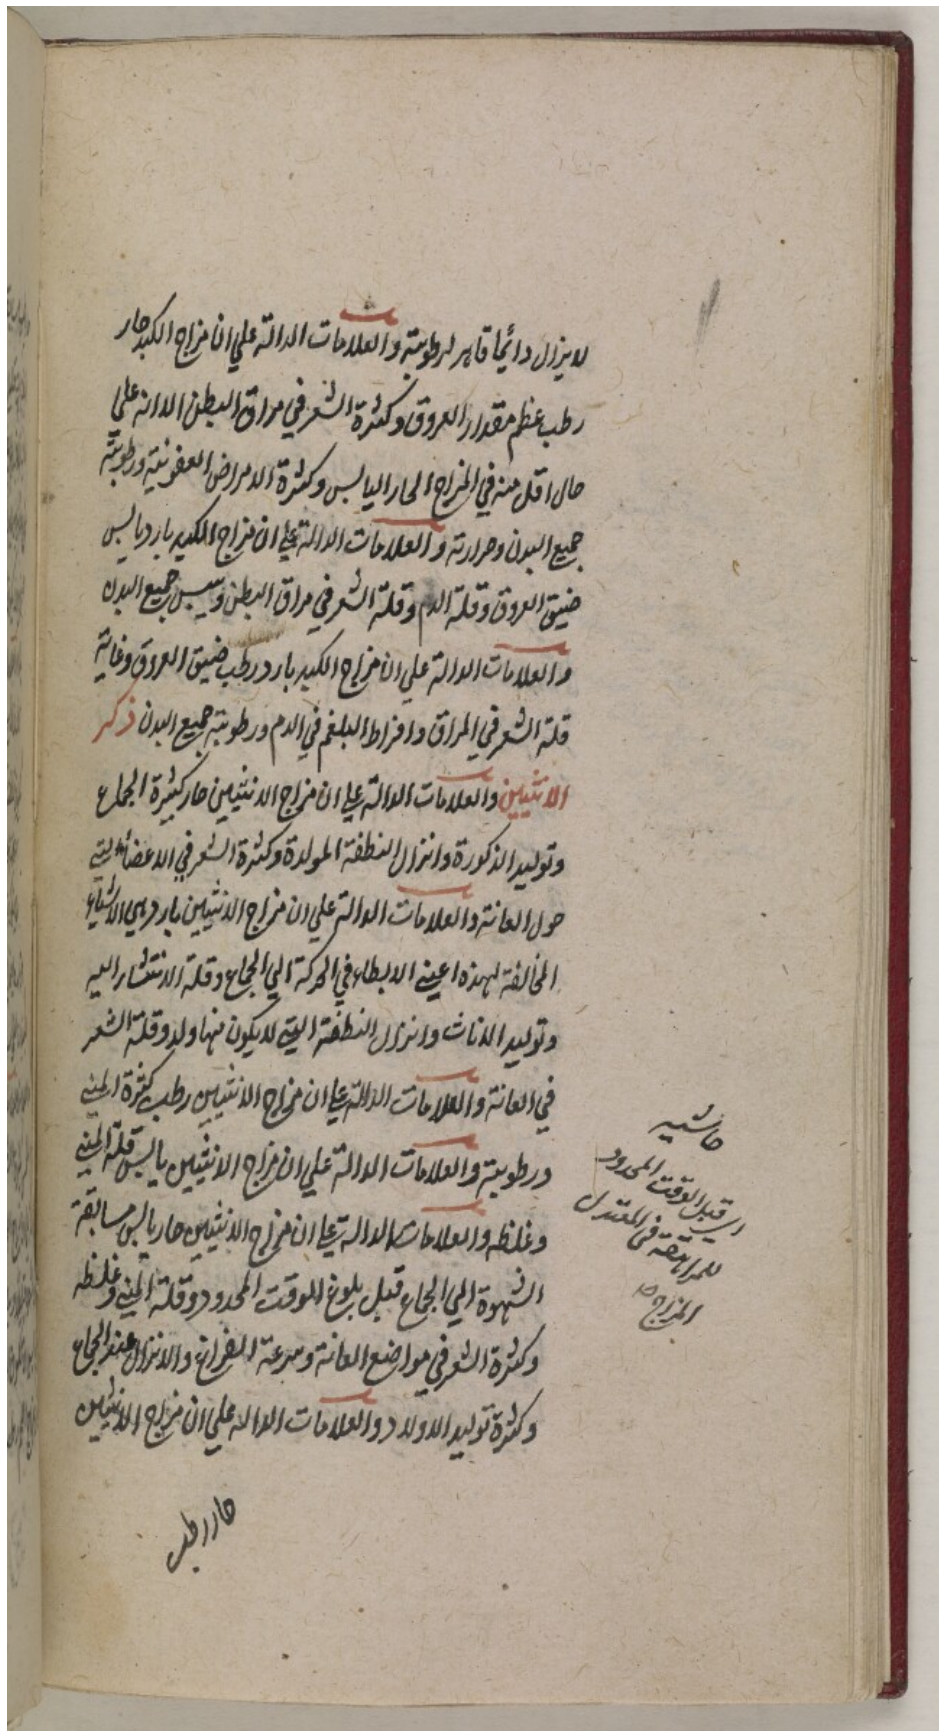 لا يزال دائما قاهر لرطوبته والعلامات الدالة علي ان مزاج الكبد حار
رطب عظم مقدار العروق وكثرة الشعر في مراق البطن الدالة علي
حال اقل منه في المزاج الحار اليابس وكثرة الامراض العفونية ورطوبة
جميع البدن وحرارته والعلامات الدالة علي ان مزاج الكبد بارد يابس
ضيق العروق وقلة الدم وقلة الشعر في مراق البطن ويبس جميع البدن
والعلامات الدالة علي ان مزاج الكبد بارد رطب ضيق العروق وغاية
قلة الشعر في المراق وافراط البلغم في الدم ورطوبة جميع البدن ذكر
الانثيين والعلامات الدالة علي ان مزاج الانثيين حار كثرة الجماع
وتوليد الذكورة وانزال النطفة المولدة وكثرة الشعر في الاعضاء التي
حول العانة والعلامات الدالة علي ان مزاج الانثيين بارد هي الاشياء
المخالفة لهذه اعني الابطاء في الحركة الي الجماع وقلة الانتشار اليه
وتوليد الاناث وانزال النطفة التي لا يكون منها ولد وقلة الشعر
في العانة والعلامات الدالة علي ان مزاج الانثيين رطب كثرة المني
ورطوبته والعلامات الدالة علي ان مزاج الانثيين يابس قلة المني
وغلظه والعلامات الدالة علي ان مزاج الانثيين حار يابس مسابقة
الشهوة الي الجماع قبل بلوغ الوقت المحدود وقلة المني وغلظه
وكثرة الشعر في مواضع العانة وسرعة الفراغ والانزال عند الجماع
وكثرة توليد الاولاد والعلامات الدالة علي ان مزاج الانثيين
حار رطب
حاشيه
اي قبل الوقت المحدود
للمراهقة في المعتدل
المزاج